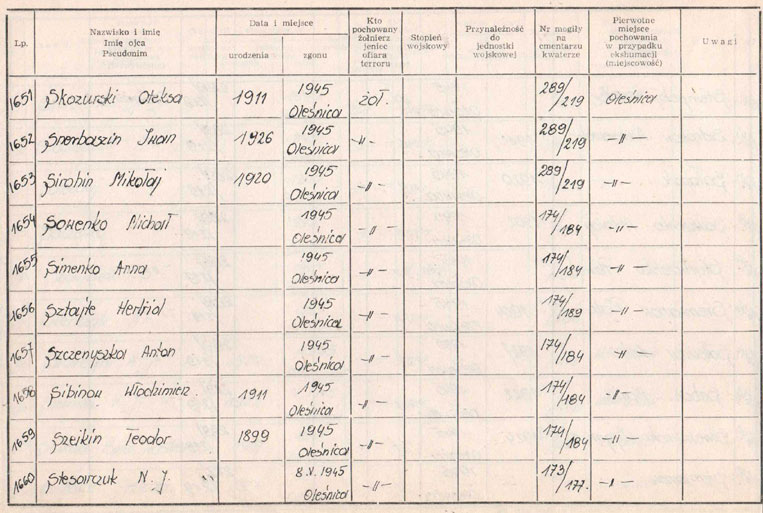 Lp. Nazwisko i imię Imię ojca Pseudonim Data i miejsce urodzenia zgonu Kto pochowany żołnierz jeniec ofiara terroru Stopień wojskowy Przynależność do jednostki wojskowej Nr mogiły na cmentarzu kwaterze Pierwotne miejsce pochowania w przypadku ekshumacji (miejscowość) Uwagi
1651 Skozurski Oleksa 1911 1945 Oleśnica żoł. 289/219 Oleśnica
1652 Iwan 1926 1945 Oleśnica -"- 289/219 -"-
1653 Sirohin Mikołaj 1920 1945 Oleśnica -"- 289/219 -"-
1654 Michaił 1945 Oleśnica -"- 174/184 -"-
1655 Simenko Anna 1945 Oleśnica -"- 174/184 -"-
1656 Sztajte 1945 Oleśnica -"- 174/189 -"-
1657 Anton 1945 Oleśnica -"- 174/184 -"-
1658 Sibinow Włodzimierz 1911 1945 Oleśnica -"- 174/184 -"-
1659 Szeikin Teodor 1899 1945 Oleśnica -"- 174/184 -"-
1660 N. J. 8.V.1945 Oleśnica -"- 173/177. -"-